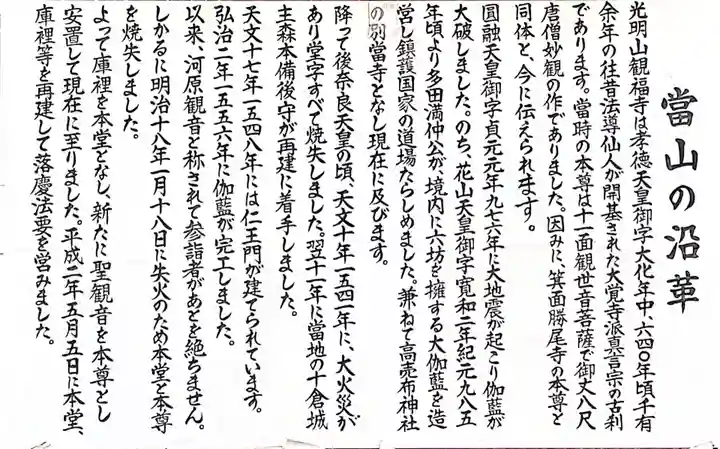 當山の沿革
光明山観福寺は孝徳天皇御宇大化年中、六四〇年頃千有
余年の往昔法導仙人が開基された大覚寺派真言宗の古刹
であります。當時の本尊は十一面観世音菩薩で御丈八尺
唐僧妙観の作でありました。因みに、箕面勝尾寺の本尊と
同体と、今に伝えられます。
圓融天皇御宇貞元元年九七六年に大地震が起こり伽藍が
大破しました。のち、花山天皇御宇寛和二年紀元九八五
年頃より多田満仲公が、境内に六坊を擁する大伽藍を造
営し鎮護国家の道場たらしめました。兼ねて高売布神社
の別當寺となし現在に及びます。
降って後奈良天皇の頃、天文十年一五四一年に、大火災が
あり堂宇すべて焼失しました。翌十一年に當地の十倉城
主森本備後守が再建に着手しました。
天文十七年一五四八年には仁王門が建てられています。
弘治二年一五五六年に伽藍が完工しました。
以来、河原観音と称されて参詣者があとを絶ちません。
しかるに明治十八年一月十八日に失火のため本堂と本尊
を焼失しました。
よって庫裡を本堂となし、新たに聖観音を本尊とし
安置して現在に至りました。平成二年五月五日に本堂、
庫裡等を再建して落慶法要を営みました。